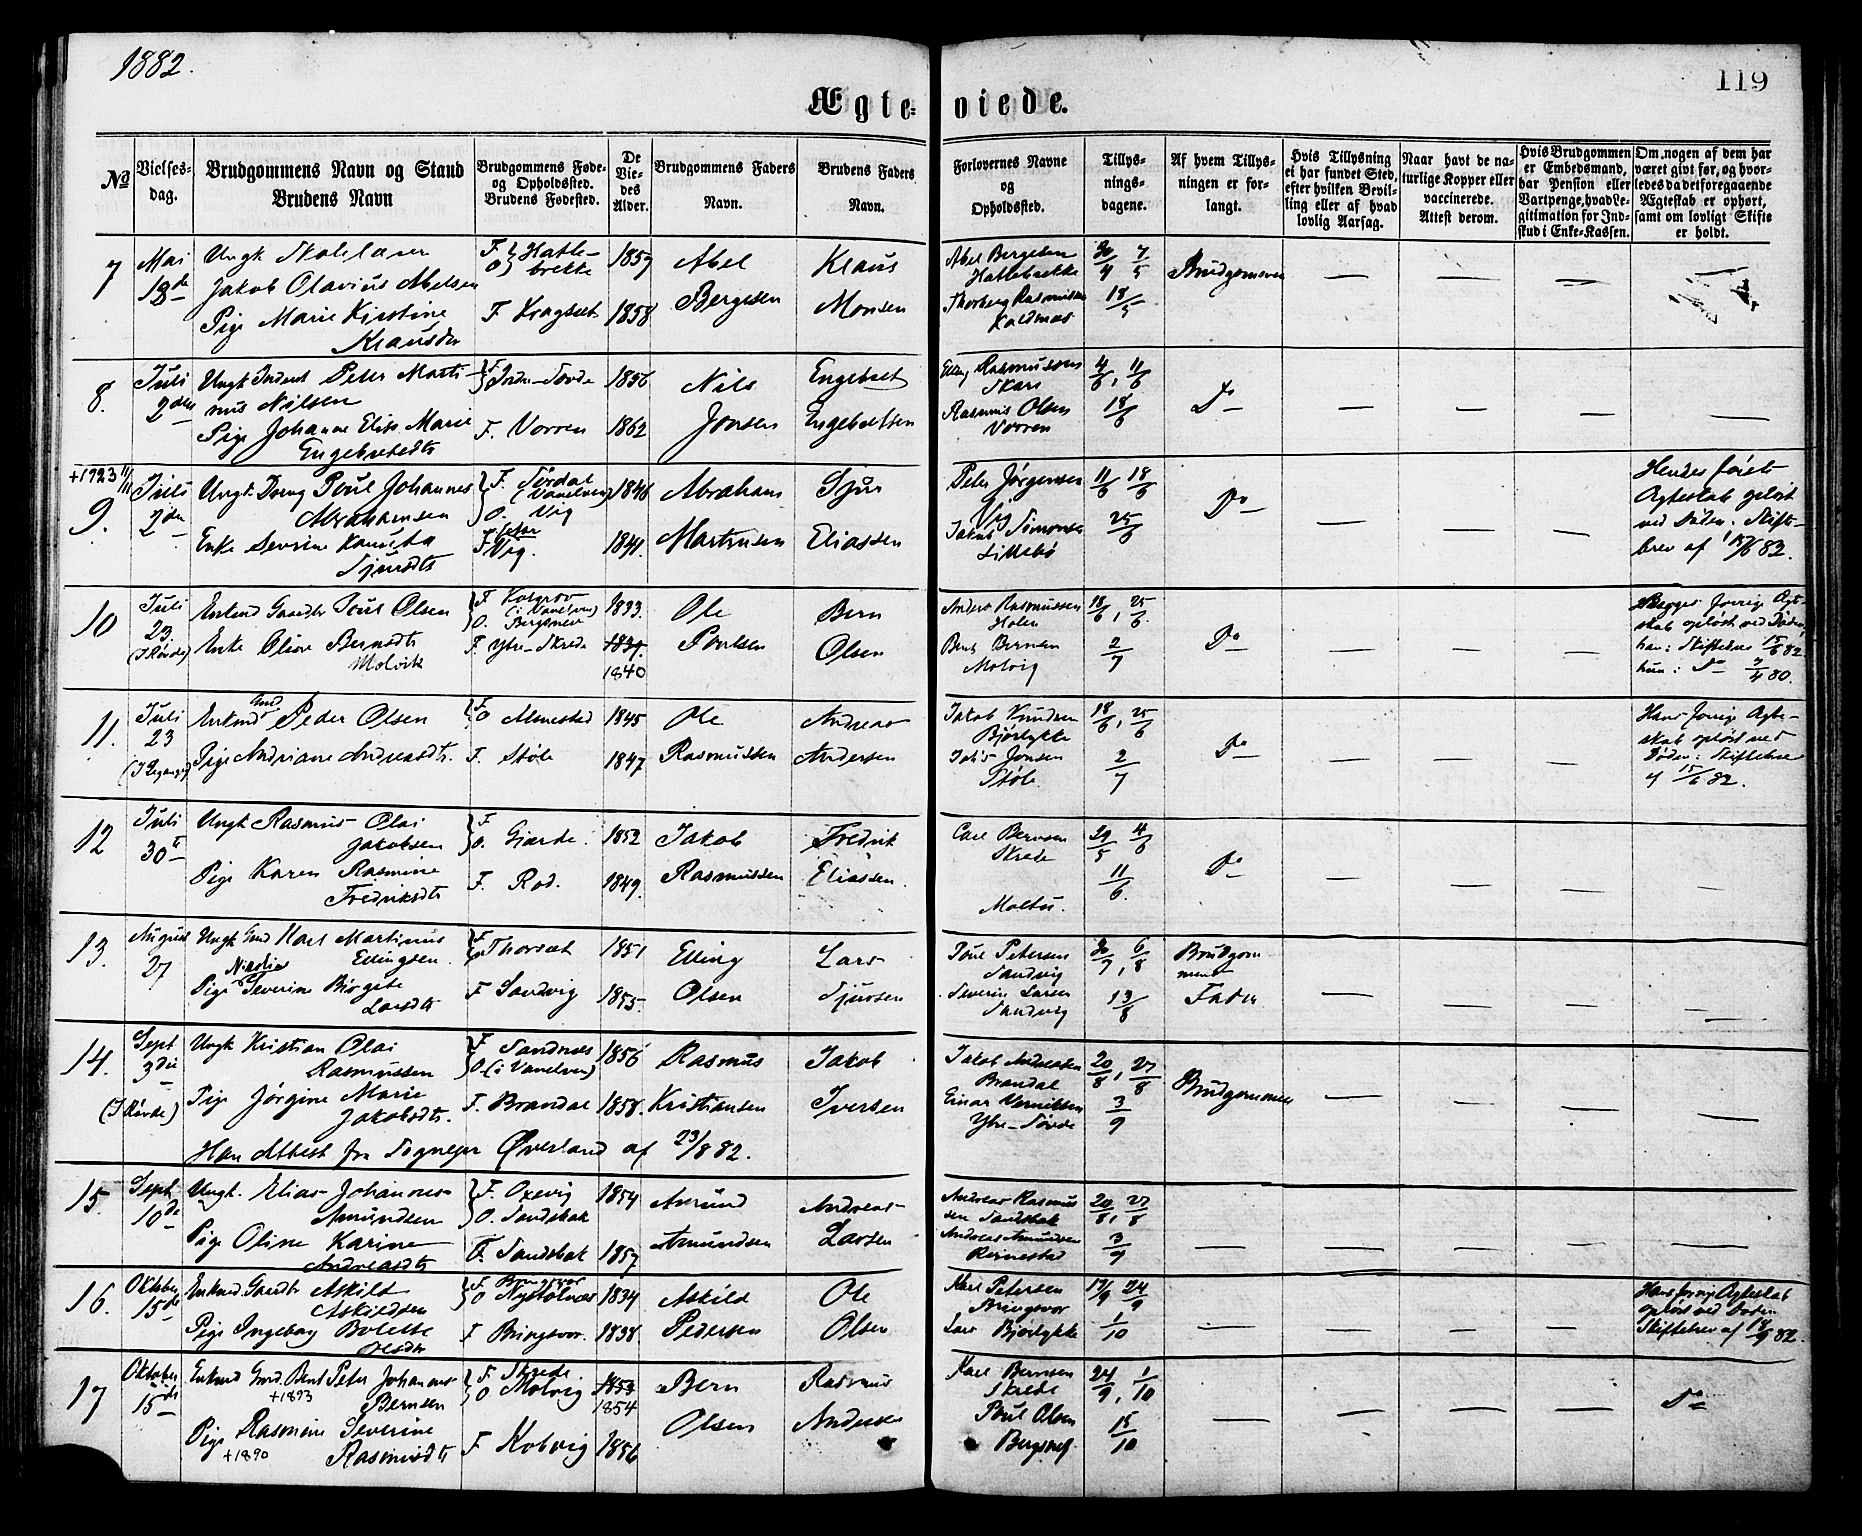 1882.
119
Ægte-viede.
No
Vielses-dag.
Brudgommens Navn og Stand
Brudens Navn
Brudgommens Føde-
og Opholdssted.
Brudens Fødested.
De Vie-des Alder.
Brudgommens Faders Navn.
Brudens Faders Navn.
Forlovernes Navne
og
Opholdssted.
Tillys-nings-dagene.
Af hvem Tillys-ningen er for-langt.
Hvis Tillysning ei har fundet Sted, efter hvilken Bevil-ling eller af hvad lovlig Aarsag.
Naar havt de na-turlige Kopper eller vaccinerede. Attest derom.
Hvis Brudgommen er Embedsmand, har Pension eller Vartpenge, hvad Le-gitimation for Ind-skud i Enke-Kassen.
Om nogen af dem har været givt før, og hvor-ledes da det foregaaende Ægteskab er ophørt, samt om lovligt Skifte er holdt.
7
Mai 18de
Ungk Skolelærer
Jakob Olavius Abelsen
Pige Marie Kirstine
Klausdtr
F. O. Hatle-brekke
F. Kragset
1857
1858
Abel Bergesen
Klaus Monsen
Abel Bergesen
Hatlebrekke
Thorberg Rasmussen
Koldmas
30/4 7/5
18/5
Brudgommen
8.
Juli 2den
Ungk Inderst Peter Marti-
nus Nilsen
Pige Johanne Elise Marie
Engebretsdtr
F. Indre-Søvde
F. Vorren
1856
1862
Nils Jonsen
Engebret Engebretsen
Elling Rasmussen
Skare
Rasmus Olsen
Vorren
4/6, 11/6
18/6
Do
+1923 11/11
9.
Juli 2den
Ungk. Poul Johannes
Abrahamsen
Enke Severine
Sjursdtr
F. Sørdal
(Vanelven)
O. Vig
F. Vig.
1846
1841.
Abraham Martinsen
Sjur Eliassen
Peter Jørgensen
Vig
Jakob Simonsen
Lillebø
11/6 18/6
25/6
Do
Hendes første
Ægteskab opløst
ved Døden. Skifte-
brev af 15/6 82.
10
Juli 23.
(I Røvde)
Enkmd Gaardbr Poul Olsen
Enke Oline Berntsdtr
Molvik
F. (i Vanelven)
O. Bergsnev
F. Ytre-Skrede
1833.
1839.
1840
Ole Poulsen
Bern Olsen
Anders Rasmussen
Holen
Bent Bernsen
Molvig
18/6, 25/6
2/7
Do
Begges forrige Ægte-
skab opløst ved Døden,
han: Skiftebrev 15/6 82.
hun: Do 7/4 80.
11.
Juli 23
Enkmd Gmd Peder Olsen
Pige Andriane Andreasdtr.
F. O. Almestad
F. Støle
1845
1847
Ole Rasmussen
Andreas Andersen
Jakob Knudsen
Bjørlykke
Jonsen
Støle
18/6, 25/6
2/7
Do
Hans forrige Ægte-
skab opløst ved
Døden: Skiftebrev
af 15/6 82.
12
Juli 30te
Ungk Rasmus Olai
Jakobsen
Pige Karen Rasmine
Fredriksdtr
F. O. Gjærde.
F. Rød.
1852
1849.
Jakob Rasmussen
Fredrik Eliassen.
Carl Bernsen
Skrede
Moltu.
29/5 4/6
11/6
Do
13.
August 27
Ungk Gmd Karl Martinus
Ellingsen.
Nikolia
Pige Severine Birgite
Larsdtr
F. O. Thorsæt
F Sandvig
1851
1855.
Elling Olsen
Lars Sjursen
Poul Petersen
Sandvig
Severin Larsen
Sandvig
30/7, 6/8
13/8
Brudgom
mens
Fader
14.
Sept 3die
(I Røvde)
Ungk Kristian Olai
Rasmussen
Pige Jørgine Marie
Jakobsdtr.
Han Attest fra Sogneprs Øverland af 23/8 82.
F. Sandnæs
O. (i Vanelven)
F. Brandal
1856
1858.
Rasmus Kristiansen
Jakob Iversen
Jakob Andreassen
Brandal
Einar Verniksen
Ytre-Søvde
20/8, 27/8
3/9
Brudgommen
15.
Sept 10de
Ungk. Elias Johannes
Amundsen
Pige Oline Karine
Andreasdtr
F. Oxevig
O. Sandsbak
F. Sandsbak
1854
1857
Amund Amundsen
Andreas Larsen
Andreas Rasmus
sen Sandsbak
Andreas Amundsen
Reinestad
20/8, 27/8
3/9
16.
Oktober 15de
Enkmd. Gaardbr Askild
Askildsen
Pige Ingeborg Bolette
Olsdtr
F. Bringsvor
O. Nystølnæs
F Bringsvor.
1834
1838.
Askild Pedersen
Ole Olsen
Karl Petersen
Bringsvor
Lars Bjørlykke
17/9 24/9
1/10
Hans forrige Ægteskab
opløst ved Døden
Skiftebrev af 18/9 82.
17
Oktober 15de
Enkmd Gmd. Bent Peter Johannes
+1893 Bernsen
Pige Rasmine Severine
+1890 Rasmusdtr
F. Skrede.
O Molvig
F Kobvig
1853
1854
1856
Bern Olsen
Rasmus Andersen
Karl Bernsen
Skrede
Poul Olsen
Bergsnev.
24/9, 1/10
15/10
Do